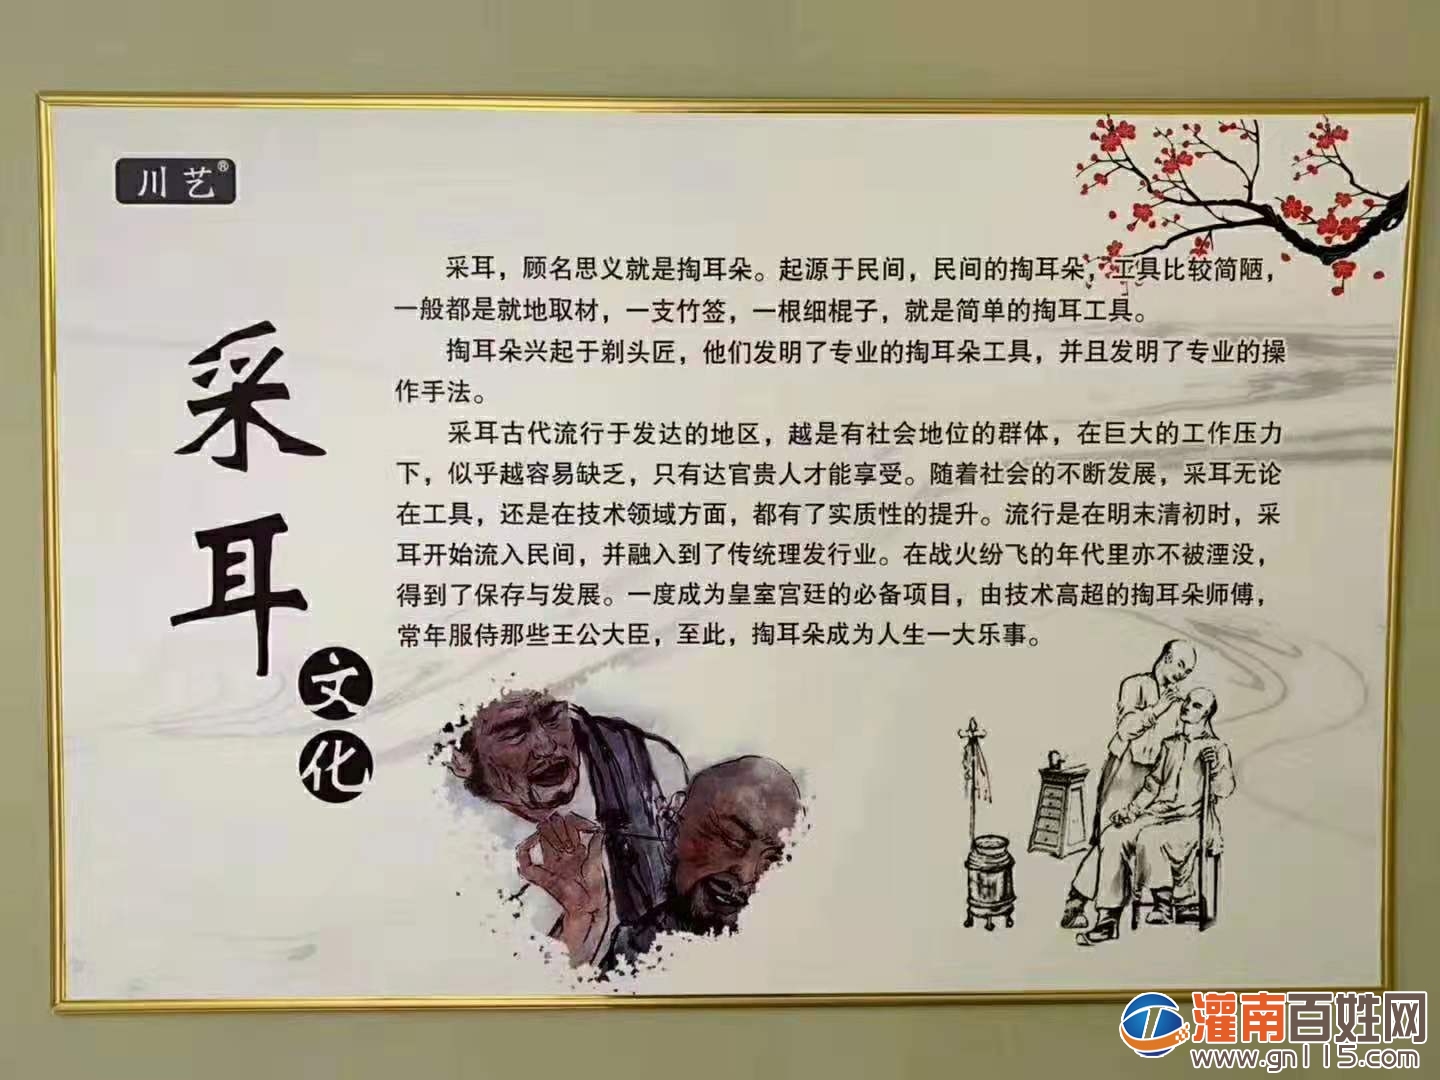 川艺®
采耳
文化
采耳，顾名思义就是掏耳朵。起源于民间，民间的掏耳朵，工具比较简陋，
一般都是就地取材，一支竹签，一根细棍子，就是简单的掏耳工具。
掏耳朵兴起于剃头匠，他们发明了专业的掏耳朵工具，并且发明了专业的操
作手法。
采耳古代流行于发达的地区，越是有社会地位的群体，在巨大的工作压力
下，似乎越容易缺乏，只有达官贵人才能享受。随着社会的不断发展，采耳无论
在工具，还是在技术领域方面，都有了实质性的提升。流行是在明末清初时，采
耳开始流入民间，并融入到了传统理发行业。在战火纷飞的年代里亦不被湮没，
得到了保存与发展。一度成为皇室宫廷的必备项目，由技术高超的掏耳朵师傅，
常年服侍那些王公大臣，至此，掏耳朵成为人生一大乐事。
灌南百姓网
www.gn115.com